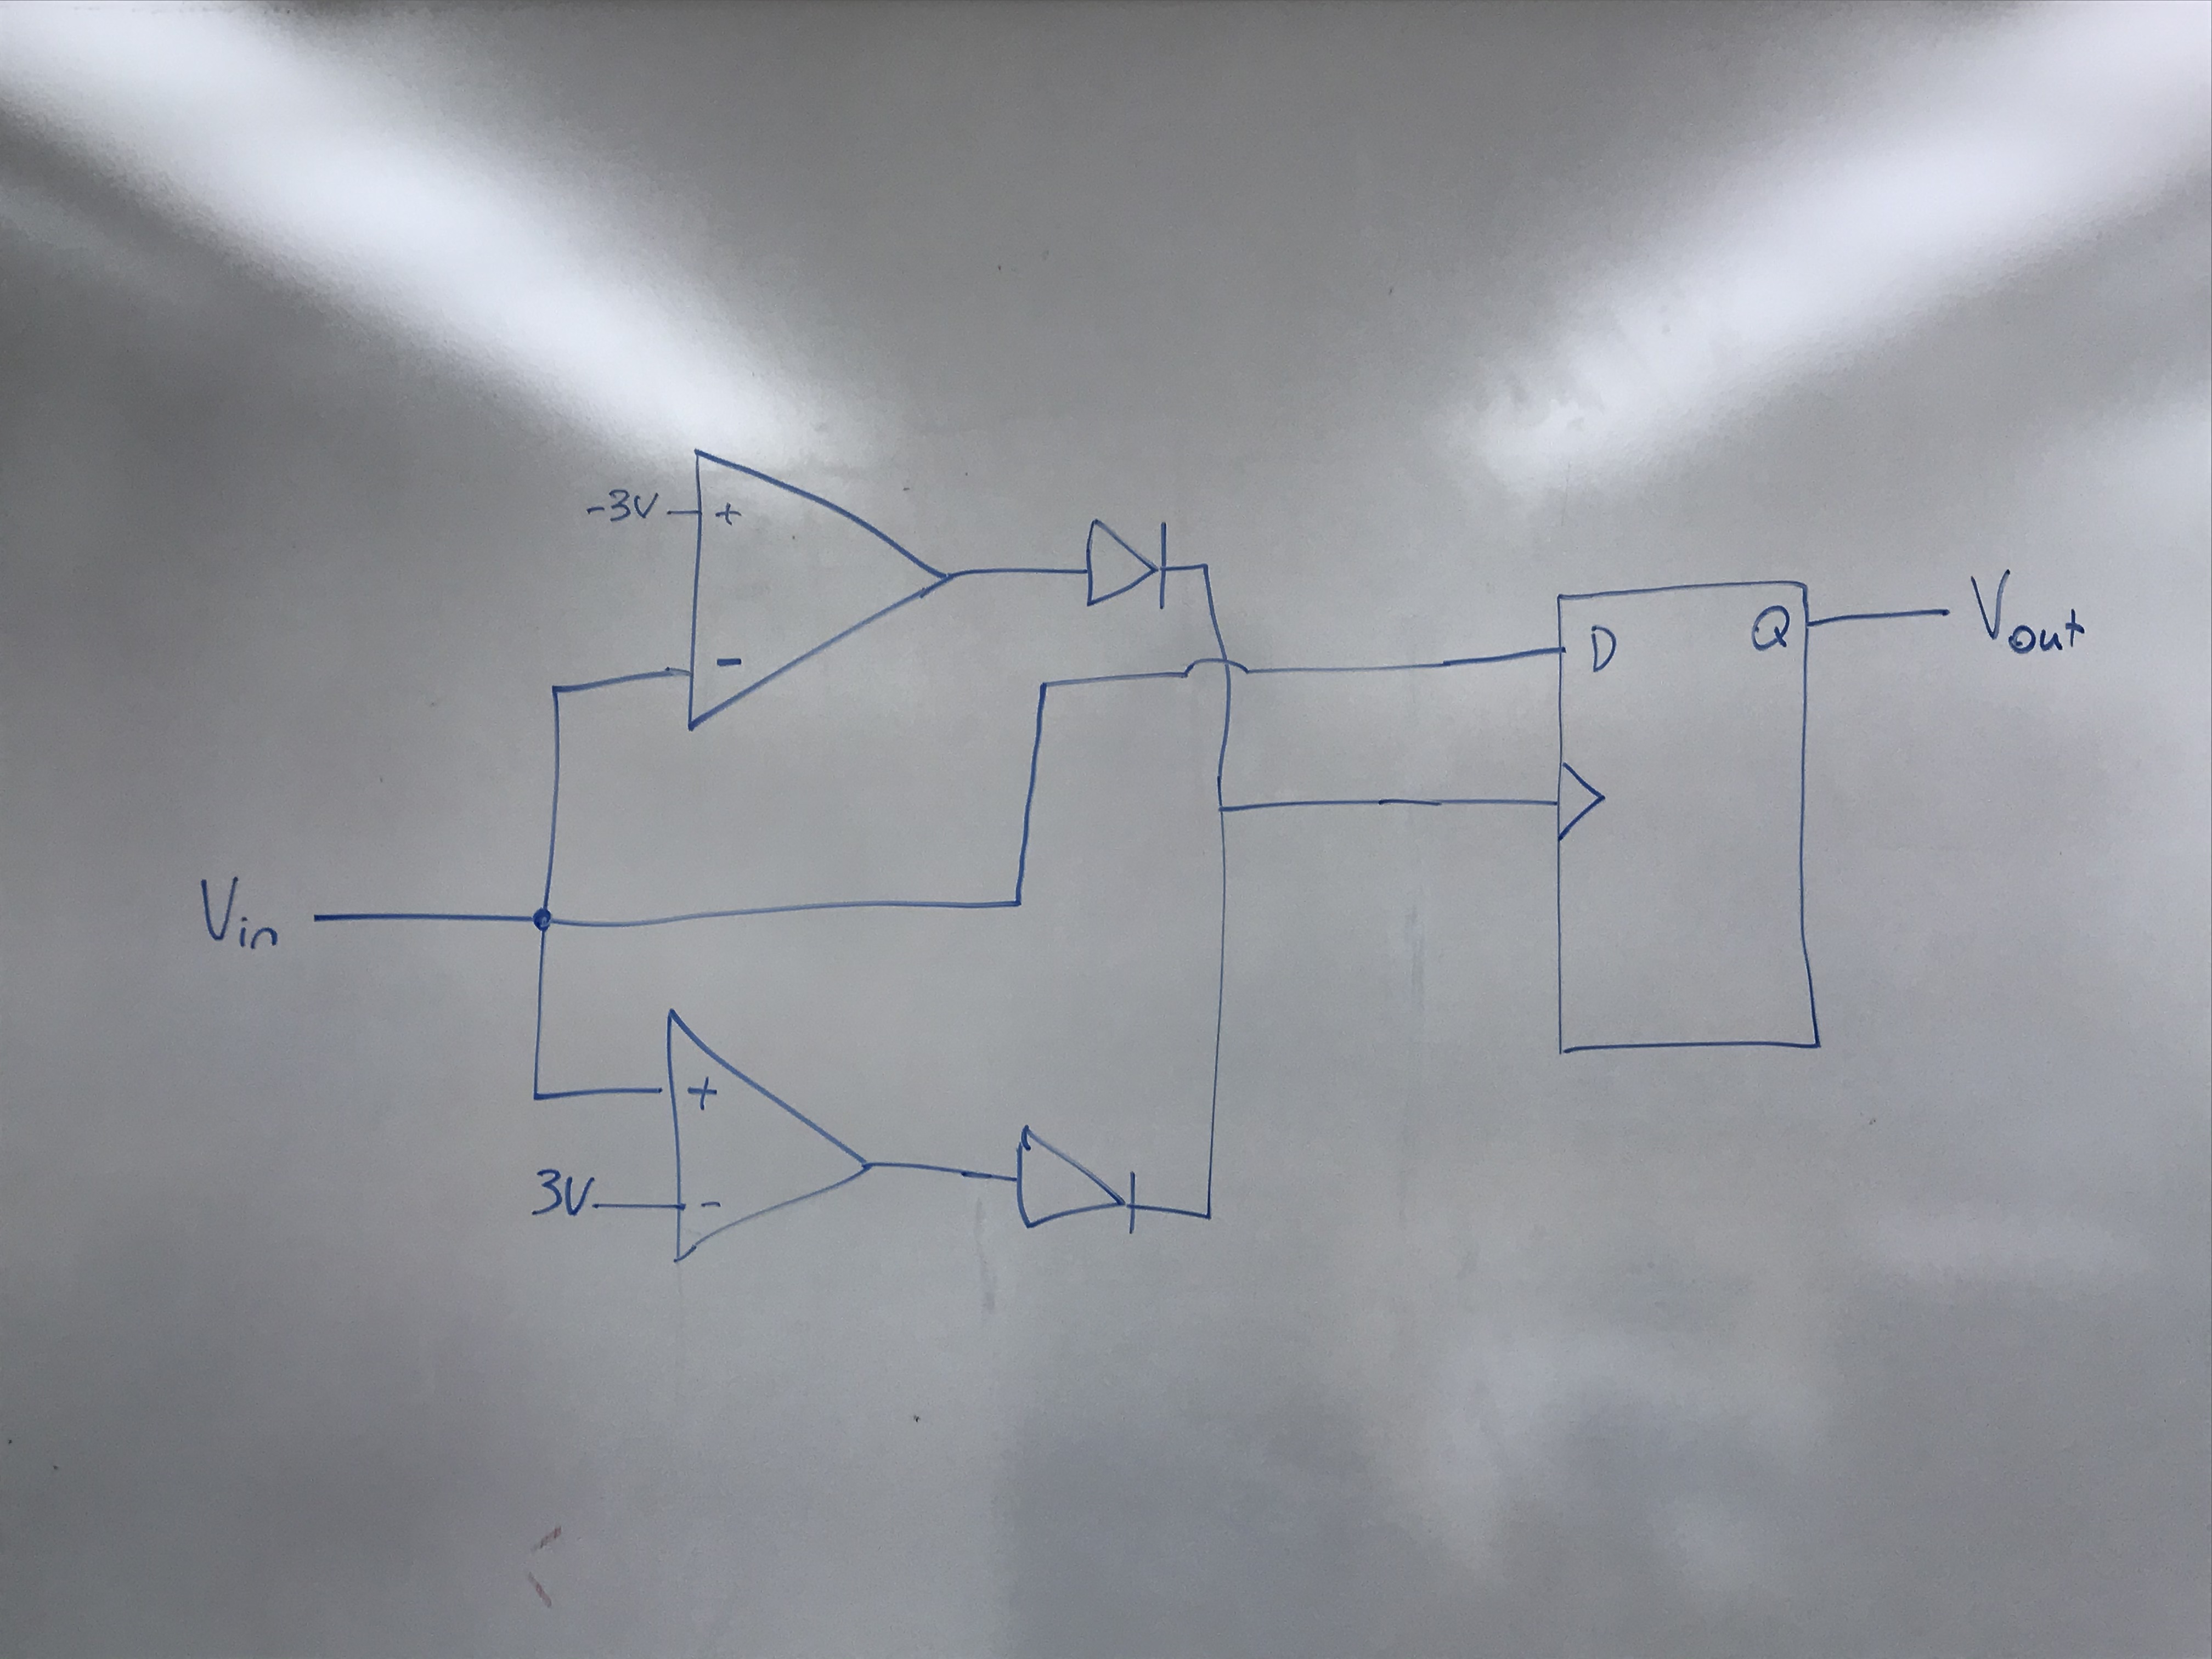 -3V
+
-
D
Q
Vout
Vin
+
3V
-